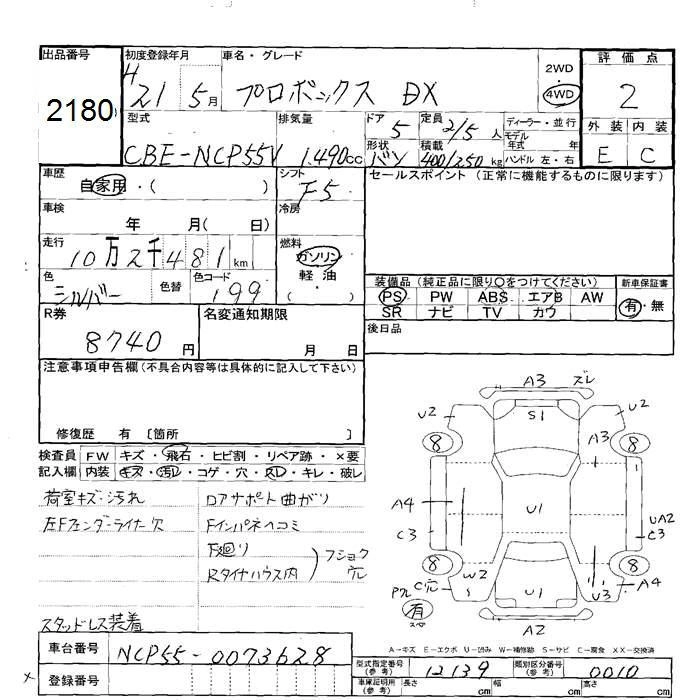 出品番号
2180
初度登録年月
H 21 5月
車名・グレード
プロボックス DX
2WD
4WD
評価点
2
外装 内装
E C
型式
CBE-NCP55V
排気量
1.490cc
ドア
5
形状
バン
定員
2/5 人
積載
400/250 kg
ディーラー・並行
モデル
年式 年
ハンドル 左・右
車歴
自家用・( )
シフト
F5
セールスポイント (正常に機能するものに限ります)
車検
年 月( 日)
冷房
走行
10万2千481km
燃料
ガソリン
軽・油
( )
色
シルバー
色替
色コード
199
装備品 (純正品に限り○をつけてください)
PS PW ABS エアB AW
SR ナビ TV カワ
新車保証書
有・無
後日品
R券
8740円
名変通知期限
月 日
注意事項申告欄(不具合内容等は具体的に記入して下さい)
修復歴 有 〔箇所 〕
検査員 FW キズ・飛石・ヒビ割・リペア跡・×要
記入欄 内装 キズ・汚れ・コゲ・穴・スレ・キレ・破レ
荷室キズ・汚れ
左Fフェンダーライナー欠
スタッドレス装着
ロアサポート曲がり
Fインパネヘコミ
下廻り
Rタイヤハウス内
フショク
穴
A3 ズレ
U2 S1 U2
8 8
A3
A4 U1 UA2
C3 C3
8 8
W2 C穴
S U1 U3 A4
A2
有
スペア
A―キズ E―エクボ U―凹み W―補修跡 S―サビ C―腐食 XX―交換済
車台番号
NCP55-0073628
登録番号
型式指定番号
(参考)
12139
類別区分番号
(参考)
0010
車庫証明用
(参考)
長さ cm 幅 cm 高さ cm